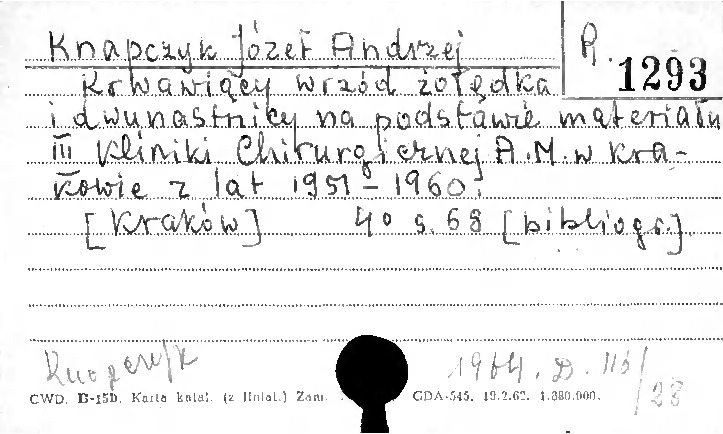 Knapczyk Józef Andrzej
R. 1293
Krwawiący wrzód żołędka
i dwunastnicy na podstawie materiału
III Kliniki Chirurgicznej A.M. w Kra-
kowie z lat 1951 – 1960.
[Kraków] 4° s. 68 [bibliogr.].
1964. D. 116/28
CWD. B-15b. Karta katal. (z liniat.) Zam. GDA-545. 19.2.62. 1.880.000.